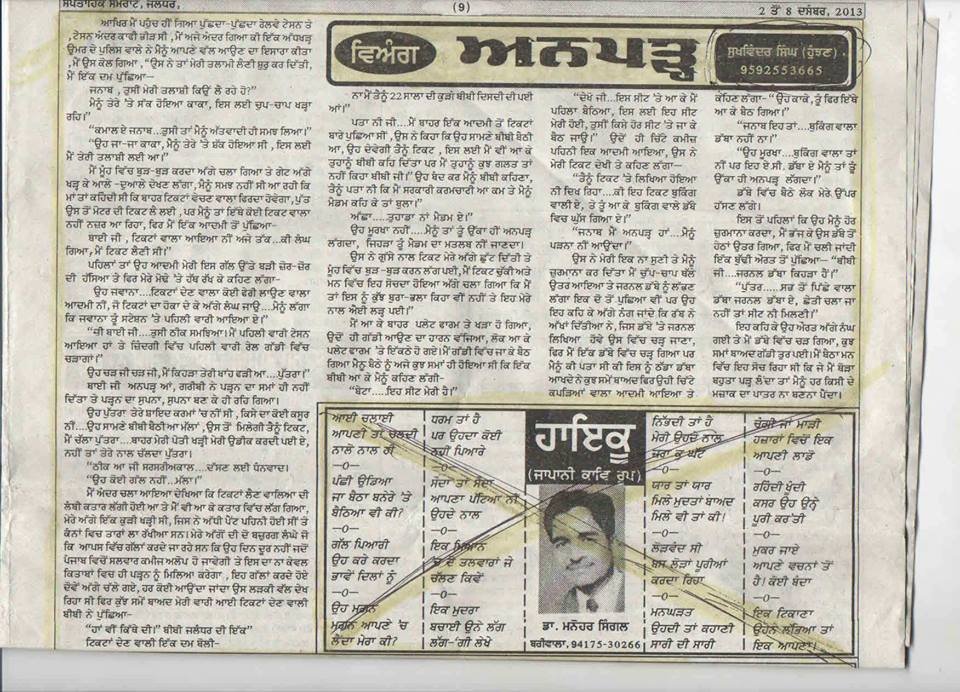 ਸਪਤਾਹਿਕ ਸਮਰਾਟ, ਜਲੰਧਰ,
(9)
2 ਤੋਂ 8 ਦਸੰਬਰ, 2013
ਵਿਅੰਗ
ਅਨਪੜ੍ਹ
ਸੁਖਵਿੰਦਰ ਸਿੰਘ (ਹੁੰਝਣ)
9592553665
ਆਖਿਰ ਮੈਂ ਪਹੁੰਚ ਹੀ ਗਿਆ ਪੁੱਛਦਾ-ਪੁੱਛਦਾ ਰੇਲਵੇ ਟੇਸਨ ਤੇ
, ਟੇਸਨ ਅੰਦਰ ਕਾਫੀ ਭੀੜ ਸੀ, ਮੈਂ ਅਜੇ ਅੰਦਰ ਗਿਆ ਕੀ ਇੱਕ ਅੱਧਖੜ
ਉਮਰ ਦੇ ਪੁਲਿਸ ਵਾਲੇ ਨੇ ਮੈਨੂੰ ਆਪਣੇ ਵੱਲ ਆਉਣ ਦਾ ਇਸਾਰਾ ਕੀਤਾ
, ਮੈਂ ਉਸ ਕੋਲ ਗਿਆ, "ਉਸ ਨੇ ਤਾਂ ਮੇਰੀ ਤਲਾਸੀ ਲੈਣੀ ਸ਼ੁਰੂ ਕਰ ਦਿੱਤੀ,
ਮੈਂ ਇੱਕ ਦਮ ਪੁੱਛਿਆ–
ਜਨਾਬ, ਤੁਸੀਂ ਮੇਰੀ ਤਲਾਸ਼ੀ ਕਿਉਂ ਲੈ ਰਹੇ ਹੋ?"
ਮੈਨੂੰ ਤੇਰੇ 'ਤੇ ਸੱਕ ਹੋਇਆ ਕਾਕਾ, ਇਸ ਲਈ ਚੁਪ-ਚਾਪ ਖੜ੍ਹਾ
ਰਹਿ।"
"ਕਮਾਲ ਏ ਜਨਾਬ...ਤੁਸੀਂ ਤਾਂ ਮੈਨੂੰ ਅੱਤਵਾਦੀ ਹੀ ਸਮਝ ਲਿਆ।"
"ਉਹ ਜਾ-ਜਾ ਕਾਕਾ, ਮੈਨੂੰ ਤੇਰੇ 'ਤੇ ਸ਼ੱਕ ਹੋਇਆ ਸੀ, ਇਸ ਲਈ
ਮੈਂ ਤੇਰੀ ਤਲਾਸ਼ੀ ਲਈ ਆ।"
ਮੈਂ ਮੂੰਹ ਵਿੱਚ ਬੁੜ-ਬੁੜ ਕਰਦਾ ਅੱਗੇ ਚਲਾ ਗਿਆ ਤੇ ਗੇਟ ਅੱਗੇ
ਖੜ੍ਹ ਕੇ ਆਲੇ - ਦੁਆਲੇ ਦੇਖਣ ਲੱਗਾ, ਮੈਨੂੰ ਸਮਝ ਨਹੀਂ ਸੀ ਆ ਰਹੀ ਕਿ
ਮਾਂ ਤਾਂ ਕਹਿੰਦੀ ਸੀ ਕਿ ਬਾਹਰ ਟਿਕਟਾਂ ਵੇਚਣ ਵਾਲਾ ਫਿਰਦਾ ਹੋਵੇਗਾ, ਪੁੱਤ
ਉਸ ਤੋਂ ਮੋਟਰ ਦੀ ਟਿਕਟ ਲੈ ਲਈ, ਪਰ ਮੈਨੂੰ ਤਾਂ ਇੱਥੇ ਕੋਈ ਟਿਕਟ ਵਾਲਾ
ਨਹੀਂ ਨਜ਼ਰ ਆ ਰਿਹਾ, ਫਿਰ ਮੈਂ ਇੱਕ ਆਦਮੀ ਤੋਂ ਪੁੱਛਿਆ–
ਬਾਈ ਜੀ, ਟਿਕਟਾਂ ਵਾਲਾ ਆਇਆ ਨੀਂ ਅਜੇ ਤੱਕ...ਕੀ ਲੰਘ
ਗਿਆ, ਮੈਂ ਟਿਕਟ ਲੈਣੀ ਸੀ।"
ਪਹਿਲਾਂ ਤਾਂ ਉਹ ਆਦਮੀ ਮੇਰੀ ਇਸ ਗੱਲ ਉੱਤੇ ਬੜੀ ਜ਼ੋਰ-ਜ਼ੋਰ
ਦੀ ਹੱਸਿਆ ਤੇ ਫਿਰ ਮੇਰੇ ਮੋਢੇ 'ਤੇ ਹੱਥ ਰੱਖ ਕੇ ਕਹਿਣ ਲੱਗਾ–
ਉਹ ਜਵਾਨਾ....ਟਿਕਟਾਂ ਦੇਣ ਵਾਲਾ ਕੋਈ ਫੇਰੀ ਲਾਉਣ ਵਾਲਾ
ਆਦਮੀ ਨੀਂ, ਜੋ ਟਿਕਟਾਂ ਦਾ ਹੋਕਾ ਦੇ ਕੇ ਅੱਗੇ ਲੰਘ ਜਾਊ....ਮੈਨੂੰ ਲੱਗਾ
ਕਿ ਜਵਾਨਾ ਤੂੰ ਸਟੇਸ਼ਨ 'ਤੇ ਪਹਿਲੀ ਵਾਰੀ ਆਇਆ ਏ।"
"ਜੀ ਬਾਈ ਜੀ....ਤੁਸੀਂ ਠੀਕ ਸਮਝਿਆ। ਮੈਂ ਪਹਿਲੀ ਵਾਰੀ ਟੇਸਨ
ਆਇਆ ਹਾਂ ਤੇ ਜ਼ਿੰਦਗੀ ਵਿੱਚ ਪਹਿਲੀ ਵਾਰੀ ਰੇਲ ਗੱਡੀ ਵਿੱਚ
ਚੜਾਂਗਾ।"
ਉਹ ਚੜ ਜੀ ਚੜ ਜੀ, ਮੈਂ ਕਿਹੜਾ ਤੇਰੀ ਬਾਂਹ ਫੜੀ ਆ....ਪੁੱਤਰਾ।"
ਬਾਈ ਜੀ ਅਨਪੜ੍ਹ ਆਂ, ਗਰੀਬੀ ਨੇ ਪੜ੍ਹਨ ਦਾ ਸਮਾਂ ਹੀ ਨਹੀਂ
ਦਿੱਤਾ ਤੇ ਪੜ੍ਹਨ ਦਾ ਸੁਪਨਾ, ਸੁਪਨਾ ਬਣ ਕੇ ਹੀ ਰਹਿ ਗਿਆ।
ਉਹ ਪੁੱਤਰਾ ਤੇਰੇ ਬਾਇਦ ਕਰਮਾਂ 'ਚ ਨੀਂ ਸੀ, ਕਿਸੇ ਦਾ ਕੋਈ ਕਸੂਰ
ਨੀਂ....ਉਹ ਸਾਮਣੇ ਬੀਬੀ ਬੈਠੀ ਆ ਮੱਲਾ, ਉਸ ਤੋਂ ਮਿਲੇਗੀ ਤੈਨੂੰ ਟਿਕਟ,
ਮੈਂ ਚੱਲਾ ਪੁੱਤਰਾ....ਬਾਹਰ ਮੇਰੀ ਪੋਤੀ ਖੜੀ ਮੇਰੀ ਉਡੀਕ ਕਰਦੀ ਪਈ ਏ,
ਨਹੀਂ ਤਾਂ ਤੇਰੇ ਨਾਲ ਚੱਲਦਾ ਪੁੱਤਰਾ।
"ਠੀਕ ਆ ਜੀ ਸਗਸਰੀਅਕਾਲ....ਦੱਸਣ ਲਈ ਧੰਨਵਾਦ।
"ਉਹ ਕੋਈ ਗੱਲ ਨਹੀਂ...ਮੱਲਾ।"
ਮੈਂ ਅੰਦਰ ਚਲਾ ਆਇਆ ਦੇਖਿਆ ਕਿ ਟਿਕਟਾਂ ਲੈਣ ਵਾਲਿਆ ਦੀ
ਲੰਬੀ ਕਤਾਰ ਲੱਗੀ ਹੋਈ ਆ ਤੇ ਮੈਂ ਵੀ ਆ ਕੇ ਕਤਾਰ ਵਿੱਚ ਲੱਗ ਗਿਆ,
ਮੇਰੇ ਅੱਗੇ ਇੱਕ ਕੁੜੀ ਖੜ੍ਹੀ ਸੀ, ਜਿਸ ਨੇ ਅੱਧੀ ਪੈਂਟ ਪਹਿਨੀ ਹੋਈ ਸੀ ਤੇ
ਕੰਨਾਂ ਵਿੱਚ ਤਾਰਾਂ ਲਾ ਰੱਖੀਆ ਸਨ। ਮੇਰੇ ਅੱਗੋਂ ਦੀ ਦੋ ਬਜ਼ੁਰਗ ਲੰਘੇ ਜੋ
ਕਿ ਆਪਸ ਵਿੱਚ ਗੱਲਾਂ ਕਰਦੇ ਜਾ ਰਹੇ ਸਨ ਕਿ ਉਹ ਦਿਨ ਦੂਰ ਨਹੀਂ ਜਦੋਂ
ਪੰਜਾਬ ਵਿੱਚੋਂ ਸਲਵਾਰ ਕਮੀਜ ਅਲੋਪ ਹੋ ਜਾਵੇਗੀ ਤੇ ਇਸ ਦਾ ਨਾ ਕੇਵਲ
ਕਿਤਾਬਾਂ ਵਿਚ ਹੀ ਪੜ੍ਹਨ ਨੂੰ ਮਿਲਿਆ ਕਰੇਗਾ, ਇਹ ਗੱਲਾਂ ਕਰਦੇ ਹੋਏ
ਦੋਵੇਂ ਅੱਗੇ ਚੱਲੇ ਗਏ, ਹਰ ਕੋਈ ਆਉਂਦਾ ਜਾਂਦਾ ਉਸ ਲੜਕੀ ਵੱਲ ਦੇਖ
ਰਿਹਾ ਸੀ ਫਿਰ ਕੁੱਝ ਸਮੇਂ ਬਾਅਦ ਮੇਰੀ ਵਾਰੀ ਆਈ ਟਿਕਟਾਂ ਦੇਣ ਵਾਲੀ
ਬੀਬੀ ਨੇ ਪੁੱਛਿਆ–
"ਹਾਂ ਵੀਂ ਕਿੱਥੇ ਦੀ।" ਬੀਬੀ ਜਲੰਧਰ ਦੀ ਇੱਕ"
ਟਿਕਟਾਂ ਦੇਣ ਵਾਲੀ ਇੱਕ ਦਮ ਬੋਲੀ–
ਨਾ ਮੈਂ ਤੈਨੂੰ 22 ਸਾਲਾਂ ਦੀ ਕੁੜੀ ਬੀਬੀ ਦਿਸਦੀ ਦੀ ਪਈ
ਆਂ।"
ਪਤਾ ਨੀਂ ਜੀ...ਮੈਂ ਬਾਹਰ ਇੱਕ ਆਦਮੀ ਤੋਂ ਟਿਕਟਾਂ
ਬਾਰੇ ਪੁੱਛਿਆ ਸੀ, ਉਸ ਨੇ ਕਿਹਾ ਕਿ ਉਹ ਸਾਮਣੇ ਬੀਬੀ ਬੈਠੀ
ਆ, ਉਹ ਦੇਵੇਗੀ ਤੈਨੂੰ ਟਿਕਟ, ਇਸ ਲਈ ਮੈਂ ਵੀਂ ਆ ਕੇ
ਤੁਹਾਨੂੰ ਬੀਬੀ ਕਹਿ ਦਿੱਤਾ ਪਰ ਮੈਂ ਤੁਹਾਨੂੰ ਕੁਝ ਗਲਤ ਤਾਂ
ਨਹੀਂ ਕਿਹਾ ਬੀਬੀ ਜੀ।" ਉਹ ਬੰਦ ਕਰ ਮੈਨੂੰ ਬੀਬੀ ਕਹਿਣਾ,
ਤੈਨੂੰ ਪਤਾ ਨੀਂ ਕਿ ਮੈਂ ਸਰਕਾਰੀ ਕਰਮਚਾਰੀ ਆਂ ਕਮ ਤੇ ਮੈਨੂੰ
ਮੈਡਮ ਕਹਿ ਕੇ ਤਾਂ ਬੁਲਾ।"
ਅੱਛਾ.....ਤੁਹਾਡਾ ਨਾਂ ਮੈਡਮ ਏ।"
ਉਹ ਮੂਰਖਾ ਨਹੀਂ.....ਮੈਨੂੰ ਤਾਂ ਤੂੰ ਉੱਕਾ ਹੀ ਅਨਪੜ੍ਹ
ਲੱਗਦਾ, ਜਿਹੜਾ ਤੂੰ ਮੈਡਮ ਦਾ ਮਤਲਬ ਨੀਂ ਜਾਣਦਾ।
ਉਸ ਨੇ ਗੁੱਸੇ ਨਾਲ ਟਿਕਟ ਮੇਰੇ ਅੱਗੇ ਛੁੱਟ ਦਿੱਤੀ ਤੇ
ਮੂੰਹ ਵਿੱਚ ਬੁੜ-ਬੁੜ ਕਰਨ ਲੱਗ ਪਈ, ਮੈਂ ਟਿਕਟ ਚੁੱਕੀ ਅਤੇ
ਮਨ ਵਿੱਚ ਇਹ ਸੋਚਦਾ ਹੋਇਆ ਅੱਗੇ ਚਲਾ ਗਿਆ ਕਿ ਮੈਂ
ਤਾਂ ਇਸ ਨੂੰ ਕੁੱਝ ਬੁਰਾ-ਭਲਾ ਕਿਹਾ ਵੀਂ ਨਹੀਂ ਤੇ ਇਹ ਮੇਰੇ
ਨਾਲ ਐਵੇਂ ਲੜੀ ਪਈ।"
ਮੈਂ ਆ ਕੇ ਬਾਹਰ ਪਲੇਟ ਫਾਰਮ ਤੇ ਖੜਾ ਹੋ ਗਿਆ,
ਉਦੋਂ ਹੀ ਗੱਡੀ ਆਉਣ ਦਾ ਹਾਰਨ ਵੱਜਿਆ, ਲੋਕ ਆ ਕੇ
ਪਲੇਟ ਫਾਰਮ 'ਤੇ ਇੱਕਠੇ ਹੋ ਗਏ। ਮੈਂ ਗੱਡੀ ਵਿੱਚ ਜਾ ਕੇ ਬੈਠ
ਗਿਆ ਮੈਨੂੰ ਬੈਠੇ ਨੂੰ ਅਜੇ ਕੁਝ ਸਮਾਂ ਹੀ ਹੋਇਆ ਸੀ ਕਿ ਇੱਕ
ਬੀਬੀ ਆ ਕੇ ਮੈਨੂੰ ਕਹਿਣ ਲੱਗੀ–
"ਬੇਟਾ.....ਇਹ ਸੀਟ ਮੇਰੀ ਹੈ।"
"ਦੇਖੋ ਜੀ...ਇਸ ਸੀਟ 'ਤੇ ਆ ਕੇ ਮੈਂ
ਪਹਿਲਾ ਬੈਠਿਆ, ਇਸ ਲਈ ਇਹ ਸੀਟ
ਮੇਰੀ ਹੋਈ, ਤੁਸੀਂ ਕਿਸੇ ਹੋਰ ਸੀਟ 'ਤੇ ਜਾ ਕੇ
ਬੈਠ ਜਾਉ।" ਉਦੋਂ ਹੀ ਚਿੱਟੀ ਕਮੀਜ਼
ਪਹਿਨੀ ਇਕ ਆਦਮੀ ਆਇਆ, ਉਸ ਨੇ
ਮੇਰੀ ਟਿਕਟ ਦੇਖੀ ਤੇ ਕਹਿਣ ਲੱਗਾ–
"ਤੈਨੂੰ ਟਿਕਟ 'ਤੇ ਲਿਖਿਆ ਹੋਇਆ
ਨੀ ਦਿਖ ਰਿਹਾ....ਕੀ ਇਹ ਟਿਕਟ ਬੁਕਿੰਗ
ਵਾਲੀ ਏ, ਤੇ ਤੂੰ ਆ ਕੇ ਬੁਕਿੰਗ ਵਾਲੇ ਡੱਬੇ
ਵਿਚ ਘੁੱਸ ਗਿਆ ਏ।"
"ਜਨਾਬ ਮੈਂ ਅਨਪੜ੍ਹ ਹਾਂ...ਮੈਨੂੰ
ਪੜਨਾ ਨੀਂ ਆਉਂਦਾ।"
ਉਸ ਨੇ ਮੇਰੀ ਇਕ ਨਾ ਸੁਣੀ ਤੇ ਮੈਨੂੰ
ਜੁਰਮਾਨਾ ਕਰ ਦਿੱਤਾ ਮੈਂ ਚੁੱਪ-ਚਾਪ ਥੱਲੇ
ਉਤਰ ਆਇਆ ਤੇ ਜਰਨਲ ਡੱਬੇ ਨੂੰ ਲੱਭਣ
ਲੱਗਾ ਇਕ ਦੋ ਤੋਂ ਪੁੱਛਿਆ ਵੀਂ ਪਰ ਉਹ
ਇਹ ਕਹਿ ਕੇ ਅੱਗੇ ਨੰਗ ਜਾਂਦੇ ਕਿ ਰੱਬ ਨੇ
ਅੱਖਾਂ ਦਿੱਤੀਆ ਨੇ, ਜਿਸ ਡੱਬੇ 'ਤੇ ਜਰਨਲ
ਲਿਖਿਆ ਹੋਵੇ ਉਸ ਵਿੱਚ ਚੜ੍ਹ ਜਾਣਾ,
ਫਿਰ ਮੈਂ ਇੱਕ ਡੱਬੇ ਵਿੱਚ ਚੜ੍ਹ ਗਿਆ ਪਰ
ਮੈਨੂੰ ਕੀ ਪਤਾ ਸੀ ਕੀ ਇਸ ਨੂੰ ਠੰਡਾ ਡੱਬਾ
ਆਖਦੇ ਨੇ ਕੁਝ ਸਮੇਂ ਬਾਅਦ ਫਿਰ ਉਹੀ ਚਿੱਟੇ
ਕਪੜਿਆਂ ਵਾਲਾ ਆਦਮੀ ਆਇਆ ਤੇ
ਕਹਿਣ ਲੱਗਾ–"ਉਹ ਕਾਕੇ, ਤੂੰ ਫਿਰ ਇੱਥੇ
ਆ ਕੇ ਬੈਠ ਗਿਆ।"
"ਜਨਾਬ ਇਹ ਤਾਂ...ਬੁਕਿੰਗ ਵਾਲਾ
ਡੱਬਾ ਨਹੀਂ ਨਾ।"
"ਉਹ ਮੂਰਖਾ....ਬੁਕਿੰਗ ਵਾਲਾ ਤਾਂ
ਨੀਂ ਪਰ ਇਹ ਏ.ਸੀ. ਡੱਬਾ ਏ ਮੈਨੂੰ ਤਾਂ ਤੂੰ
ਉੱਕਾ ਹੀ ਅਨਪੜ ਲੱਗਦਾ।"
ਡੱਬੇ ਵਿੱਚ ਬੈਠੇ ਲੋਕ ਮੇਰੇ ਉੱਪਰ
ਹੱਸਣ ਲੱਗੇ।
ਇਸ ਤੋਂ ਪਹਿਲਾਂ ਕਿ ਉਹ ਮੈਨੂੰ ਹੋਰ
ਜੁਰਮਾਨਾ ਕਰਦਾ, ਮੈਂ ਭੱਜ ਕੇ ਉਸ ਡੱਬੇ ਤੋਂ
ਹੇਠਾਂ ਉਤਰ ਗਿਆ, ਫਿਰ ਮੈਂ ਚਲੀ ਜਾਂਦੀ
ਇੱਕ ਬੁੱਢੀ ਔਰਤ ਤੋਂ ਪੁੱਛਿਆ– "ਬੀਬੀ
ਜੀ....ਜਰਨਲ ਡੱਬਾ ਕਿਹੜਾ ਹੈ।"
"ਪੁੱਤਰ.....ਸਭ ਤੋਂ ਪਿੱਛੇ ਵਾਲਾ
ਡੱਬਾ ਜਰਨਲ ਡੱਬਾ ਏ, ਛੇਤੀ ਚਲਾ ਜਾ
ਨਹੀਂ ਤਾਂ ਸੀਟ ਨੀ ਮਿਲਣੀ।"
ਇਹ ਕਹਿ ਕੇ ਉਹ ਔਰਤ ਅੱਗੇ ਨੰਘ
ਗਈ ਤੇ ਮੈਂ ਡੱਬੇ ਵਿੱਚ ਚੜ ਗਿਆ, ਕੁਝ
ਸਮਾਂ ਬਾਅਦ ਗੱਡੀ ਤੁਰ ਪਈ। ਮੈਂ ਬੈਠਾ ਮਨ
ਵਿੱਚ ਇਹ ਸੋਚ ਰਿਹਾ ਸੀ ਕਿ ਜੇ ਮੈਂ ਥੋੜਾ
ਬਹੁਤਾ ਪੜ੍ਹ ਲੈਂਦਾ ਤਾਂ ਮੈਨੂੰ ਹਰ ਕਿਸੀ ਦੇ
ਮਜ਼ਾਕ ਦਾ ਪਾਤਰ ਨਾ ਬਣਨਾ ਪੈਂਦਾ।
ਆਈ ਚਲਾਈ
ਆਪਣੀ ਤਾਂ ਚਲਦੀ
ਨਾਲੇ ਨਾਲ ਹੀ
–0–
ਪੰਛੀ ਉਡਿਆ
ਜਾ ਬੈਠਾ ਬਨੇਰੇ 'ਤੇ
ਬੇਠਿਆ ਵੀ ਕੀ?
–0–
ਗੱਲ ਪਿਆਰੀ
ਉਹ ਕਰੇ ਕਰਦਾ
ਭਾਵੇਂ ਦਿਲਾਂ ਨੂੰ
–0–
ਉਹ ਮਗਨ
ਮਗਨ ਆਪਣੇ 'ਚ
ਲੈਂਦਾ ਮੇਰਾ ਕੀ?
ਧਰਮ ਤਾਂ ਹੈ
ਪਰ ਉਹਦਾ ਕੋਈ
ਨਹੀਂ ਪਿਆਰੇ
–0–
ਸੌਦਾ ਤਾਂ ਸੌਦਾ
ਆਪਣਾ ਪੱਟਿਆ ਨੀਂ
ਉਹਦੇ ਨਾਲ
–0–
ਇਕ ਮਿਆਨ
'ਚ ਦੋ ਤਲਵਾਰਾਂ ਜੇ
ਚੱਲਣ ਕਿਵੇਂ
–0–
ਇਕ ਮੁਦਰਾ
ਬਚਾਈ ਉਨੇ ਲੱਗ
ਲੱਗ-ਗੀ ਲੇਖੇ
ਹਾਇਕੂ
(ਜਾਪਾਨੀ ਕਾਵਿ ਰੂਪ)
ਡਾ. ਮਨੋਹਰ ਸਿੰਗਲ
ਬਰੀਵਾਲਾ, 94175-30266
ਨਿੱਭਦੀ ਤਾਂ ਹੈ
ਮੇਰੀ ਉਹਦੇ ਨਾਲ
ਜ਼ਰਾ ਕੁ ਘੱਟ
–0–
ਯਾਰ ਤਾਂ ਯਾਰ
ਮਿਲੇ ਮੁਦਤਾਂ ਬਾਅਦ
ਮਿਲੇ ਵੀ ਤਾਂ ਕੀ!
–0–
ਲੋੜਵੰਦ ਸੀ
ਬਸ ਲੋੜਾਂ ਪੂਰੀਆਂ
ਕਰਦਾ ਰਿਹਾ
–0–
ਮਨਘੜਤ
ਉਹਦੀ ਤਾਂ ਕਹਾਣੀ
ਸਾਰੀ ਦੀ ਸਾਰੀ
ਚੰਗੀ ਜਾਂ ਮਾੜੀ
ਹਜ਼ਾਰਾਂ ਵਿਚੋਂ ਇਕ
ਆਪਣੀ ਲਾਡੋ
–0–
ਰਹਿੰਦੀ ਖੂੰਦੀ
ਕਸਰ ਉਹ ਉਨੇ
ਪੂਰੀ ਕਰ'ਤੀ
–0–
ਮੁਕਰ ਜਾਏ
ਆਪਣੇ ਵਚਨਾਂ ਤੋਂ
ਹੈ! ਕੋਈ ਬੰਦਾ
–0–
ਇਕ ਟਿਕਾਣਾ
ਉਹੋਨੇ ਲੱਭਿਆ ਤਾਂ
ਇਕ ਆਪਣਾ।